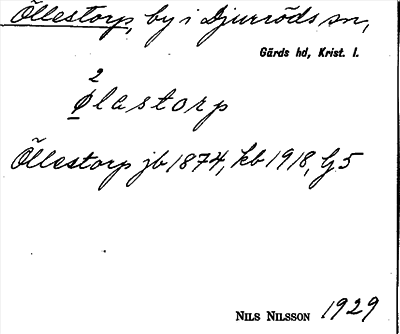 Öllestorp, by i Djurröds sn,
Gärds hd, Krist. l.
2
ølastorp
Öllestorp jb 1874, kb 1918, Gj 5
NILS NILSSON 1929